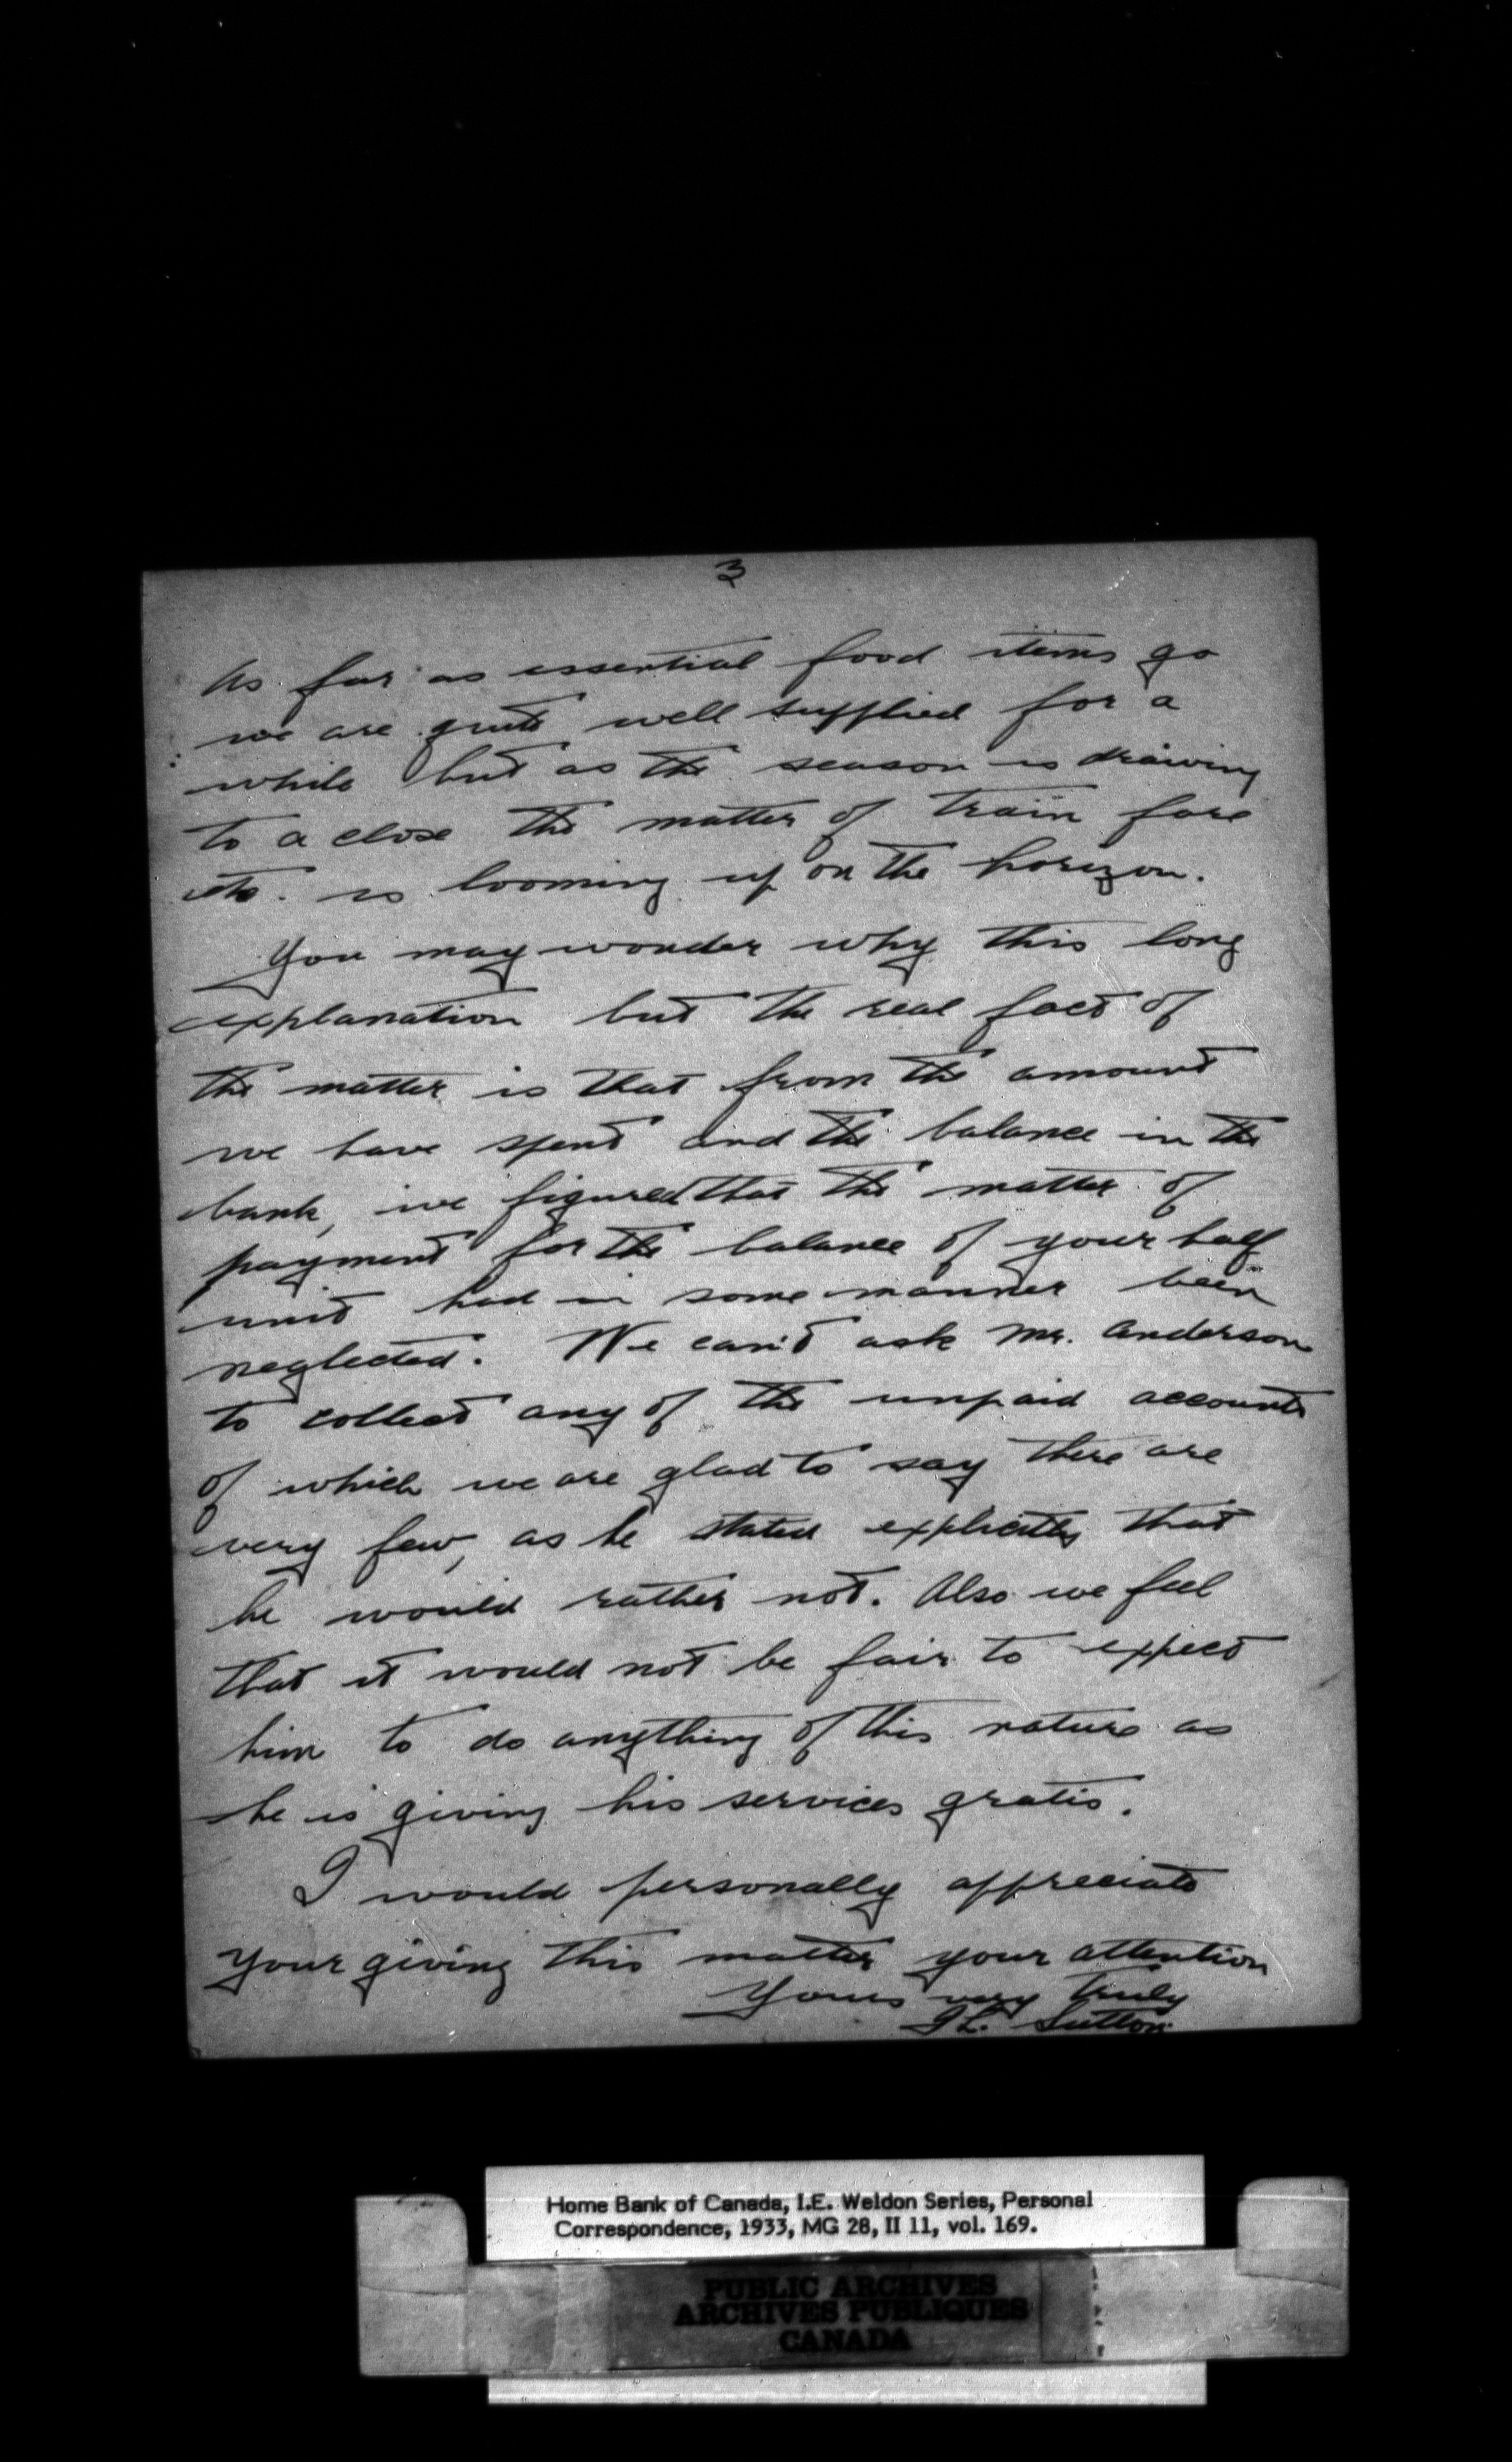 3
As far as essential food items go
we are quite well supplied for a
while but as the season is drawing
to a close the matter of train fare
etc. is looming up on the horizon.
You may wonder why this long
explanation but the real fact of
the matter is that from the amount
we have spent and the balance in the
bank, we figured that the matter of
payment for the balance of your half
unit had in some manner been
neglected. We can't ask Mr. Anderson
to collect any of the unpaid accounts
of which we are glad to say there are
very few, as he stated explicitly that
he would rather not. Also we feel
that it would not be fair to expect
him to do anything of this nature as
he is giving his services gratis.
I would personally appreciate
your giving this matter your attention
Yours very truly
Sutton
Home Bank of Canada, I.E. Weldon Series, Personal
Correspondence, 1933, MG 28, II 11, vol. 169.
PUBLIC ARCHIVES
ARCHIVES PUBLIQUES
CANADA